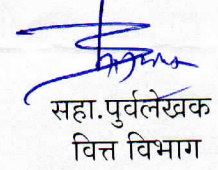 सहा.पुर्वलेखक
वित्त विभाग